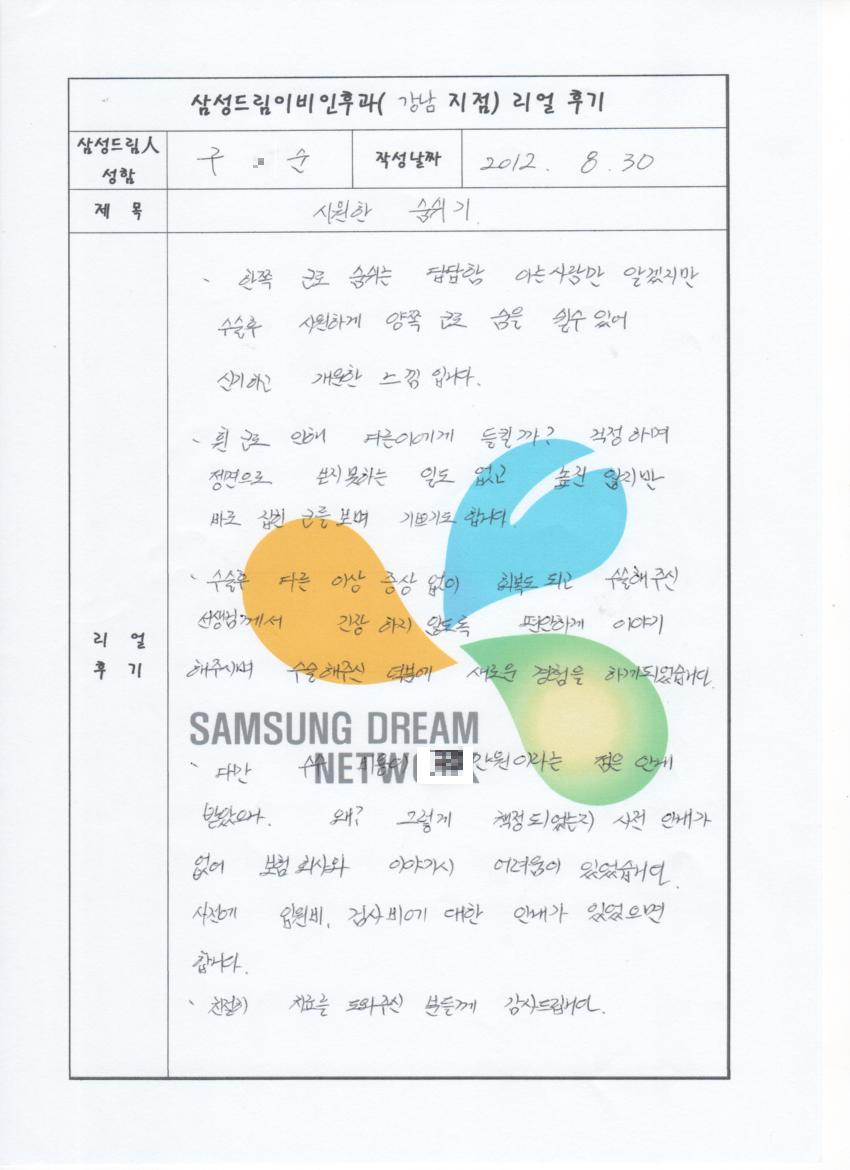 삼성드림이비인후과( 강남 지점) 리얼 후기
삼성드림人 성함
구 순
작성날짜
2012. 8. 30
제 목
시원한 숨쉬기.
리 얼 후 기
、 한쪽 코로 숨쉬는 답답함 아는사람만 알겠지만
수술후 시원하게 양쪽 코로 숨을 쉴수 있어
신기하고 개운한 느낌 입니다.
、 휜 코로 인해 다른이에게 들킬까? 걱정 하며
정면으로 보지못하는 일도 없고 높진 않지만
바로 잡힌 코를 보며 기쁘기도 합니다.
、 수술후 다른 이상 증상 없이 회복도 되고 수술해 주신
선생님께서 긴장 하지 않도록 편안하게 이야기
해주시며 수술해주신 덕분에 새로운 경험을 하게되었습니다.
SAMSUNG DREAM
NETW K
、 다만 만원이라는 점은 안내
받았으나. 왜? 그렇게 책정되었는지 사전 안내가
없어 보험 회사와 이야기시 어려움이 있었습니다.
사전에 입원비, 검사비에 대한 안내가 있었으면
합니다.
、 친절히 치료를 도와주신 분들께 감사드립니다.